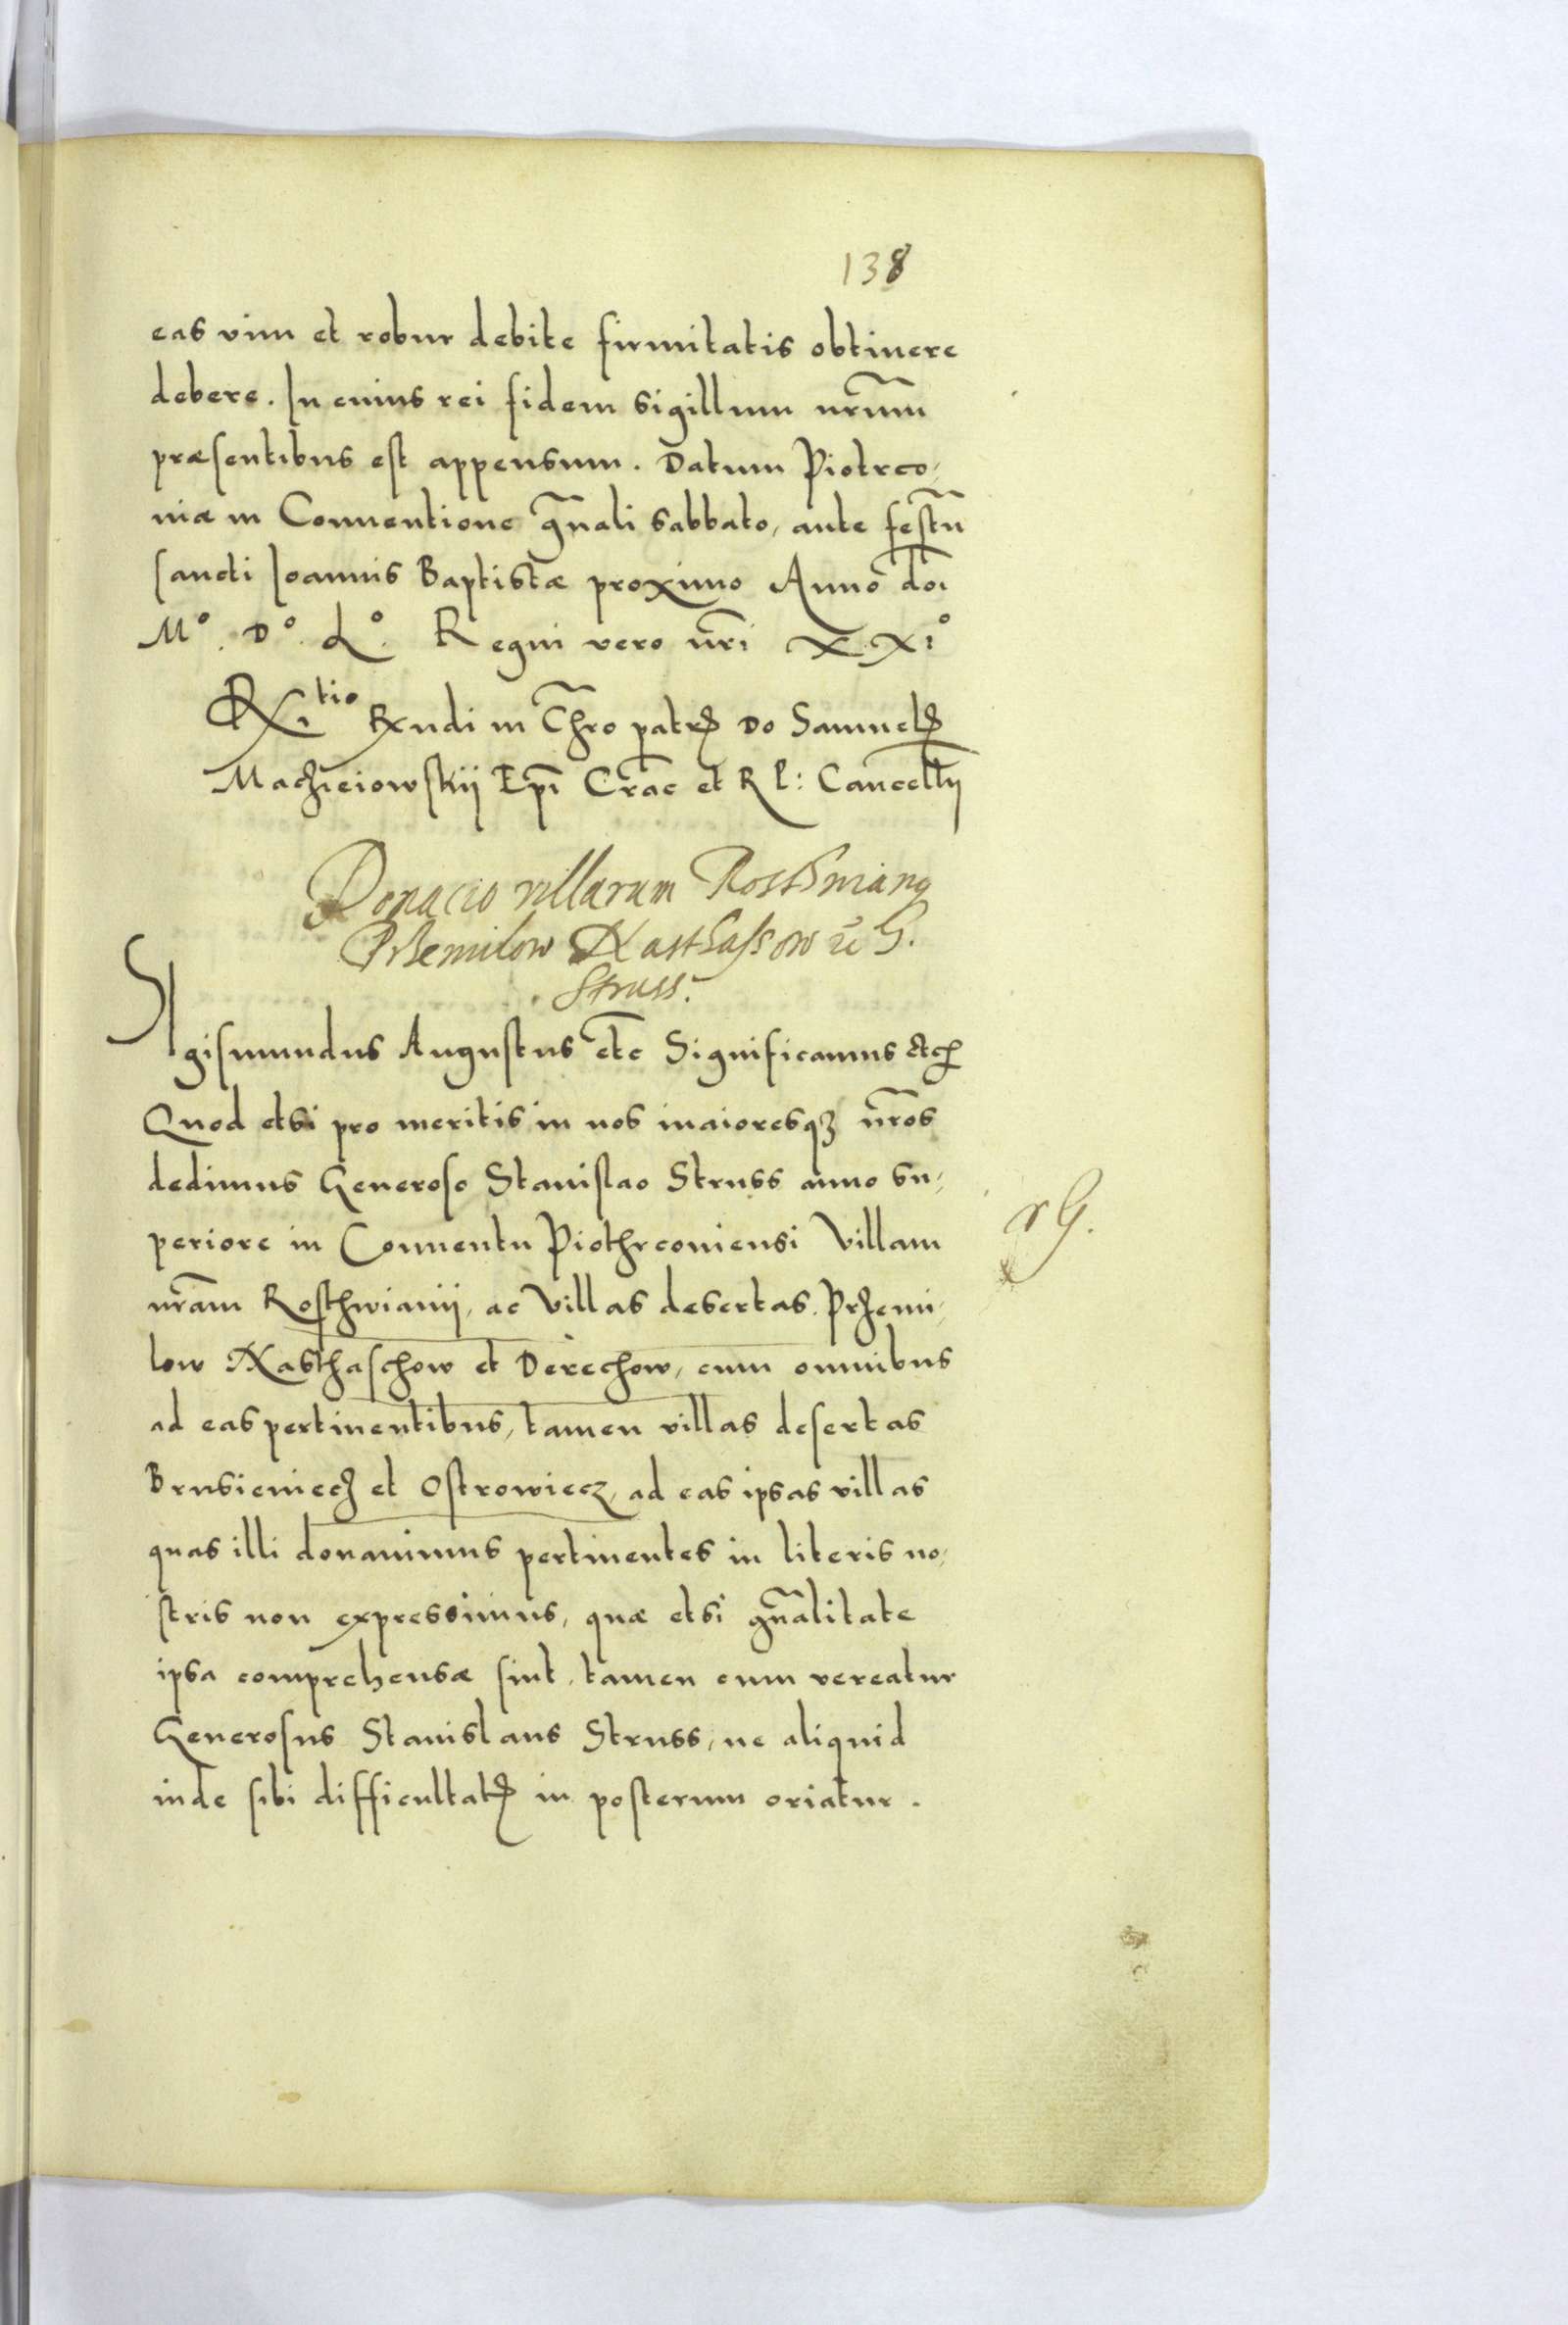 138
eas vim et robur debite firmitatis obtinere
debere. In cuius rei fidem sigillum nr̃um
præsentibus est appensum. Datum Piotrco,
niæ in Conventione gñali sabbato, ante festũ
sancti Ioannis Baptistæ proximo Anno dõi
M°. D°. L°. Regni vero nr̃i XXI°
Rxndi in Chr̃o patrꝭ Do Samuelꝭ
Maczieiowskij Epĩ Crac̃ et R P: Cancell̃ij
Donacio villarum
Struss.
Sigismundus Augustus etc̃ Significamus etcꝭ
Quod etsi pro meritis in nos maioresqꝫ nr̃os
dedimus Generoso Stanislao Struss anno su,
periore in Conuentu Piothrconiensi Villam
nr̃am Rosthwianij, ac Villas desertas Przemi,
low Nasthaschow et Derechow, cum omnibus
ad eas pertinentibus, tamen villas desertas
Brusieniecz et Ostrowiecz, ad eas ipsas villas
quas illi donauimus pertinentes in literis no,
stris non expressimus, quæ etsi gñalitate
ipsa comprehensæ sint, tamen cum vereatur
Generosus Stanislaus Struss, ne aliquid
inde sibi difficultatꝭ in posterum oriatur.